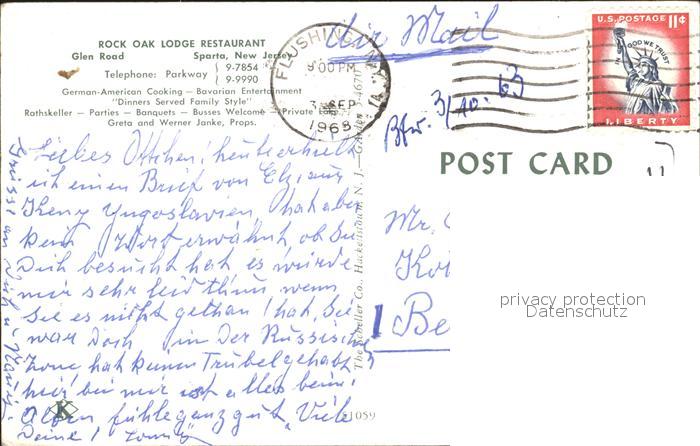 ROCK OAK LODGE RESTAURANT
Glen Road Sparta, New Jersey
Telephone: Parkway { 9-7854
9-9990
German-American Cooking — Bavarian Entertainment
"Dinners Served Family Style"
Rathskeller — Parties — Banquets — Busses Welcome — Private
Greta and Werner Janke, Props.
Air Mail
FLUSHING, N.Y.
9:00 PM
3 SEP
1963
U.S. POSTAGE 11¢
IN GOD WE TRUST
LIBERTY
3/10. 63
POST CARD
Mr.
Be
privacy protection
Datenschutz
Liebes Ottchen! heute erhielt
ich einen Brief von Elz, aus
Yugoslavien, hat aber
kein Wort erwähnt, ob Sie
Dich besucht hat es würde
mir sehr leid thun wenn
Sie es nicht gethan hat, Sie
war Doch in Der Russische
Zone hat keinen Trubel gehabt
hier bei mir ist alles beim
Alten, fühle ganz gut, Viele
Deine
The Scheller Co., Hackettstown, N. J.
K
1059